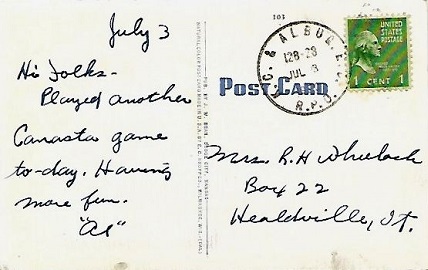 July 3
Hi Folks-
Played another
Canasta game
to-day. Having
more fun.
"Al"
103
POST CARD
UNITED
STATES
POSTAGE
1 CENT 1
& ALBUQ.
JUL 3
R.P.O.
Mrs. R. H. Wheelock
Box 22
Healdville, Vt.